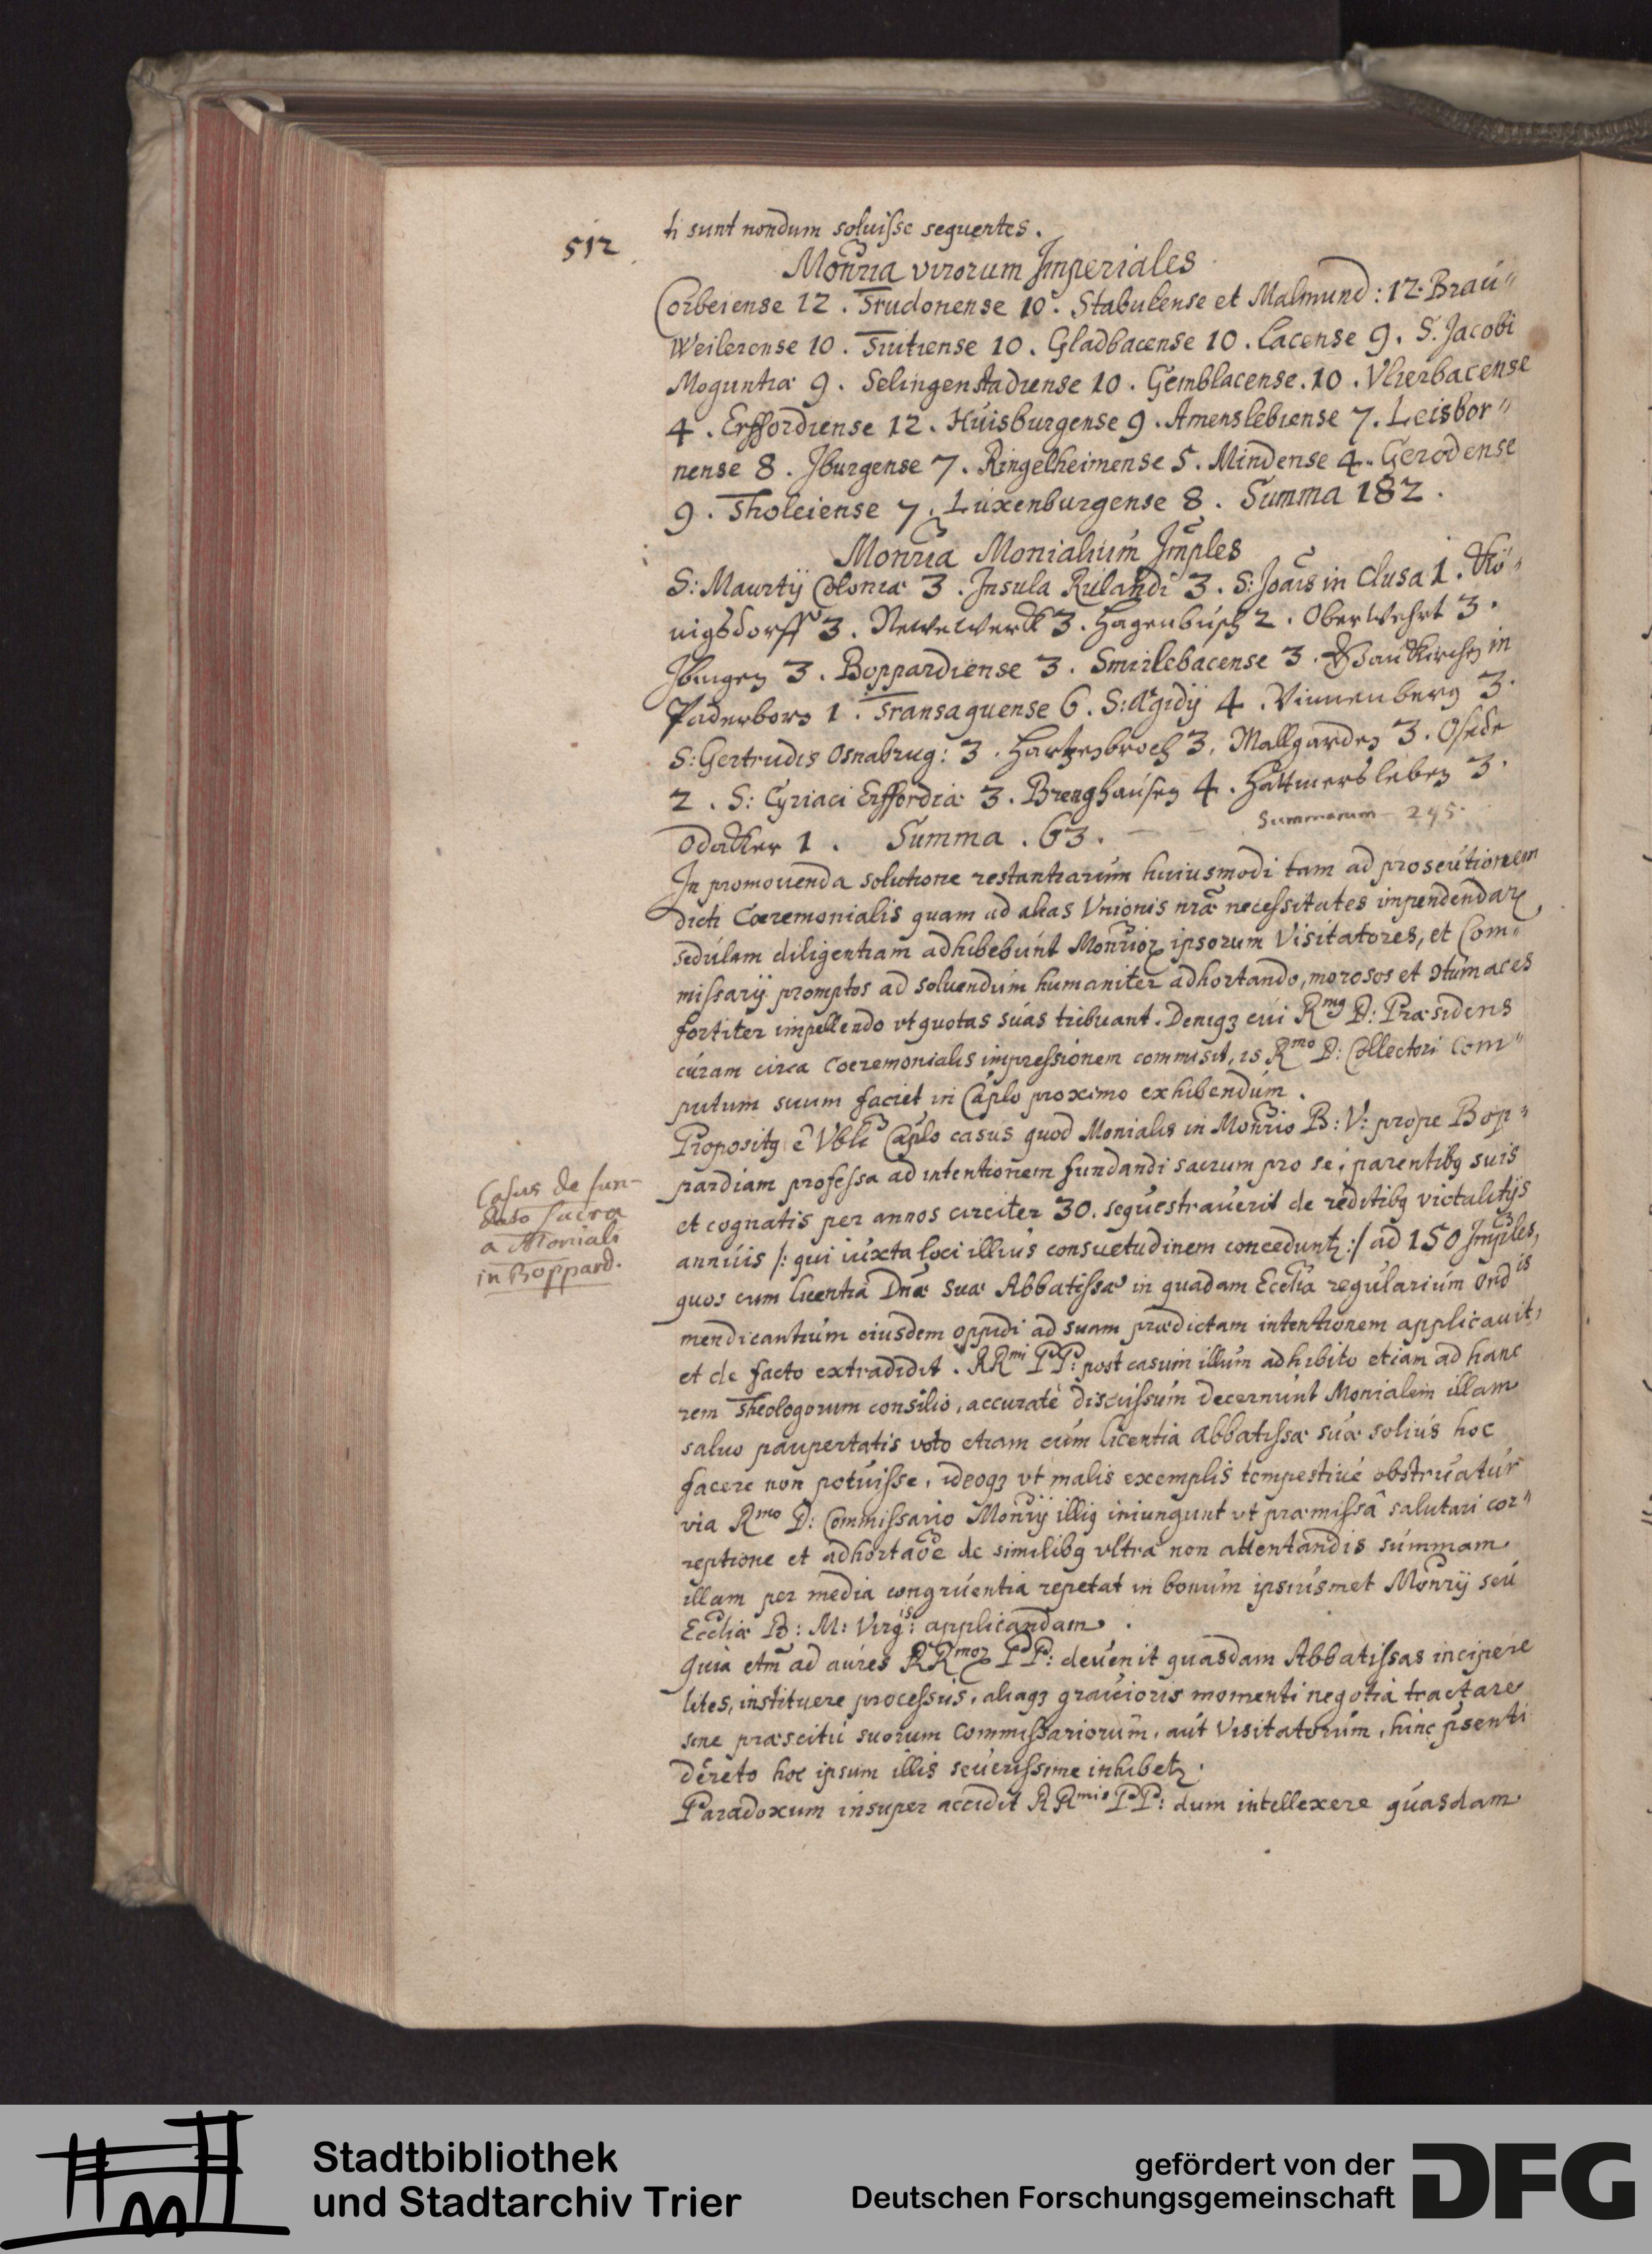 512
ti sunt nondum soluisse sequentes.
Monria virorum Imperiales
Corbeiense 12. Trudonense 10. Stabulense et Malmund: 12. Brau"
Weilerense 10. Tuitiense 10. Gladbacense 10. Lacense 9. S. Jacobi
Moguntiæ 9. Selingenstadiense 10. Gemblacense. 10. Vlierbacense
4. Erffordiense 12. Huisburgense 9. Amenslebiense 7. Leisbor"
nense 8. Jburgense 7. Ringelheimense 5. Mindense 4. Gerodense
9. Tholeiense 7. Luxenburgense 8. Summa 182.
Monria Monialium Imples
S: Mauritij Coloniæ 3. Insula Rulandi 3. S: Joãis in Clusa 1. Kö"
nigsdorff 3. Newewerck 3. Hagenbusch 2. OberWehrt 3.
Jbingen 3. Boppardiense 3. Smirlebacense 3. Gaukirchen in
Paderborn 1. Transaquense 6. S: Ægidij 4. Vinnenberg 3.
S: Gertrudis Osnabrug: 3. Hartzenbroch 3. Mallgarden 3. Osede
2. S: Cyriaci Erffordiæ 3. Brenghausen 4. Hattmersleben 3.
Odacker 1. Summa. 63. — — Summarum — 245.
In promouenda solutione restantiarum huiusmodi tam ad prosecutionem
dicti Cæremonialis quam ad alias Vnionis nræ necessitates impendendarum,
sedulam diligentiam adhibebunt Monriorum ipsorum Visitatores, et Com"
missarij promptos ad soluendum humaniter adhortando, morosos et otumaces
fortiter impellendo vt quotas suas tribuant. Deniqz cui Rmg D: Præsidens
curam circa Cœremonialis impressionem commisit, is Rmo D: Collectori Com"
putum suum faciet in Caplo proximo exhibendum.
Propositg ẽ Vbli Caplo casus quod Monialis in Monrio B: V: prope Bop"
pardiam professa ad intentionem fundandi sacrum pro se, parentibg suis
et cognatis per annos circiter 30. sequestrauerit de reditibg victalitijs
annuis /: qui iuxta loci illius consuetudinem conceduntr :/ ad 150 Imples,
quos cum licentia Dnæ suæ Abbatissæ in quadam Ecclia regularium Ordis
mendicantium eiusdem oppidi ad suam prædictam intentionem applicauit,
et de facto extradidit. RRmi PP: post casum illum adhibito etiam ad hanc
rem Theologorum consilio, accuratè discussum decernunt Monialem illam
saluo paupertatis voto etiam cum licentia Abbatissæ suæ solius hoc
facere non potuisse, ideoqz vt malis exemplis tempestiuè obstruatur
via Rmo D: Commissario Monrij illig iniungunt vt præmissâ salutari cor"
reptione et adhortaõe de similibg vltra non attentandis summam
illam per media congruentia repetat in bonum ipsiusmet Monrij seu
Eccliæ B: M: Virgis: applicandam.
Quia etm ad aures RRmorum PP: deuenit quasdam Abbatissas incipere
lites, instituere processus, aliaqz grauioris momenti negotia tractare
sine præscitu suorum Commissariorum, aut Visitatorum, hinc psenti
decreto hoc ipsum illis seuerissime inhibetr.
Paradoxum insuper accidit RRmis PP: dum intellexere quasdam
Casus de fun-
dato sacro
a Moniali
in Boppard.
Stadtbibliothek
und Stadtarchiv Trier
gefördert von der
Deutschen Forschungsgemeinschaft
DFG